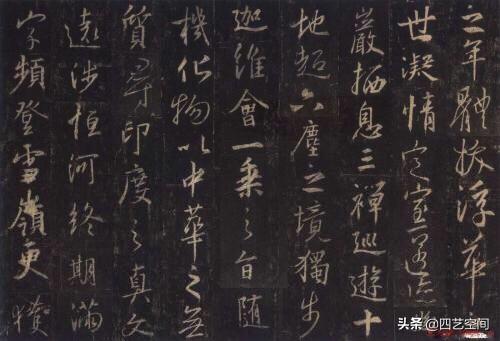 之年體拔浮華之
世凝情定室匿跡
巖栖息三禪巡遊十
地超六塵之境獨步
迦維會一乘之旨隨
機化物以中華之無
質尋印度之真文
遠涉恒河終期滿
字頻登雪嶺更獲
头条 @四艺空间